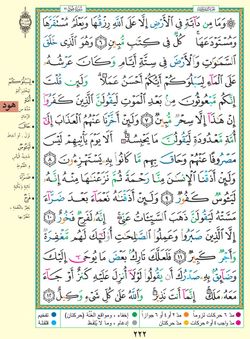 ۞ وَمَا مِن دَآبَّةٍ فِى ٱلْأَرْضِ إِلَّا عَلَى ٱللَّهِ رِزْقُهَا وَيَعْلَمُ مُسْتَقَرَّهَا
وَمُسْتَوْدَعَهَا كُلٌّ فِى كِتَٰبٍ مُّبِينٍ ٦ وَهُوَ ٱلَّذِى خَلَقَ
ٱلسَّمَٰوَٰتِ وَٱلْأَرْضَ فِى سِتَّةِ أَيَّامٍ وَكَانَ عَرْشُهُۥ
عَلَى ٱلْمَآءِ لِيَبْلُوَكُمْ أَيُّكُمْ أَحْسَنُ عَمَلًا وَلَئِن قُلْتَ
إِنَّكُم مَّبْعُوثُونَ مِنۢ بَعْدِ ٱلْمَوْتِ لَيَقُولَنَّ ٱلَّذِينَ كَفَرُوٓا۟
إِنْ هَٰذَآ إِلَّا سِحْرٌ مُّبِينٌ ٧ وَلَئِنْ أَخَّرْنَا عَنْهُمُ ٱلْعَذَابَ إِلَىٰٓ
أُمَّةٍ مَّعْدُودَةٍ لَّيَقُولُنَّ مَا يَحْبِسُهُۥٓ أَلَا يَوْمَ يَأْتِيهِمْ لَيْسَ
مَصْرُوفًا عَنْهُمْ وَحَاقَ بِهِم مَّا كَانُوا۟ بِهِۦ يَسْتَهْزِءُونَ ٨
وَلَئِنْ أَذَقْنَا ٱلْإِنسَٰنَ مِنَّا رَحْمَةً ثُمَّ نَزَعْنَٰهَا مِنْهُ إِنَّهُۥ
لَيَـُٔوسٌ كَفُورٌ ٩ وَلَئِنْ أَذَقْنَٰهُ نَعْمَآءَ بَعْدَ ضَرَّآءَ
مَسَّتْهُ لَيَقُولَنَّ ذَهَبَ ٱلسَّيِّـَٔاتُ عَنِّىٓ إِنَّهُۥ لَفَرِحٌ فَخُورٌ ١٠
إِلَّا ٱلَّذِينَ صَبَرُوا۟ وَعَمِلُوا۟ ٱلصَّٰلِحَٰتِ أُو۟لَٰٓئِكَ لَهُم مَّغْفِرَةٌ
وَأَجْرٌ كَبِيرٌ ١١ فَلَعَلَّكَ تَارِكٌۢ بَعْضَ مَا يُوحَىٰٓ إِلَيْكَ
وَضَآئِقٌۢ بِهِۦ صَدْرُكَ أَن يَقُولُوا۟ لَوْلَآ أُنزِلَ عَلَيْهِ كَنزٌ أَوْ جَآءَ
مَعَهُۥ مَلَكٌ إِنَّمَآ أَنتَ نَذِيرٌ وَٱللَّهُ عَلَىٰ كُلِّ شَىْءٍ وَكِيلٌ ١٢
هود
٢٢٢